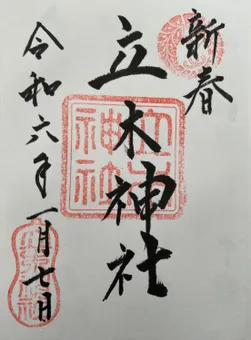 新春
立木神社
令和六年一月七日
立木神社